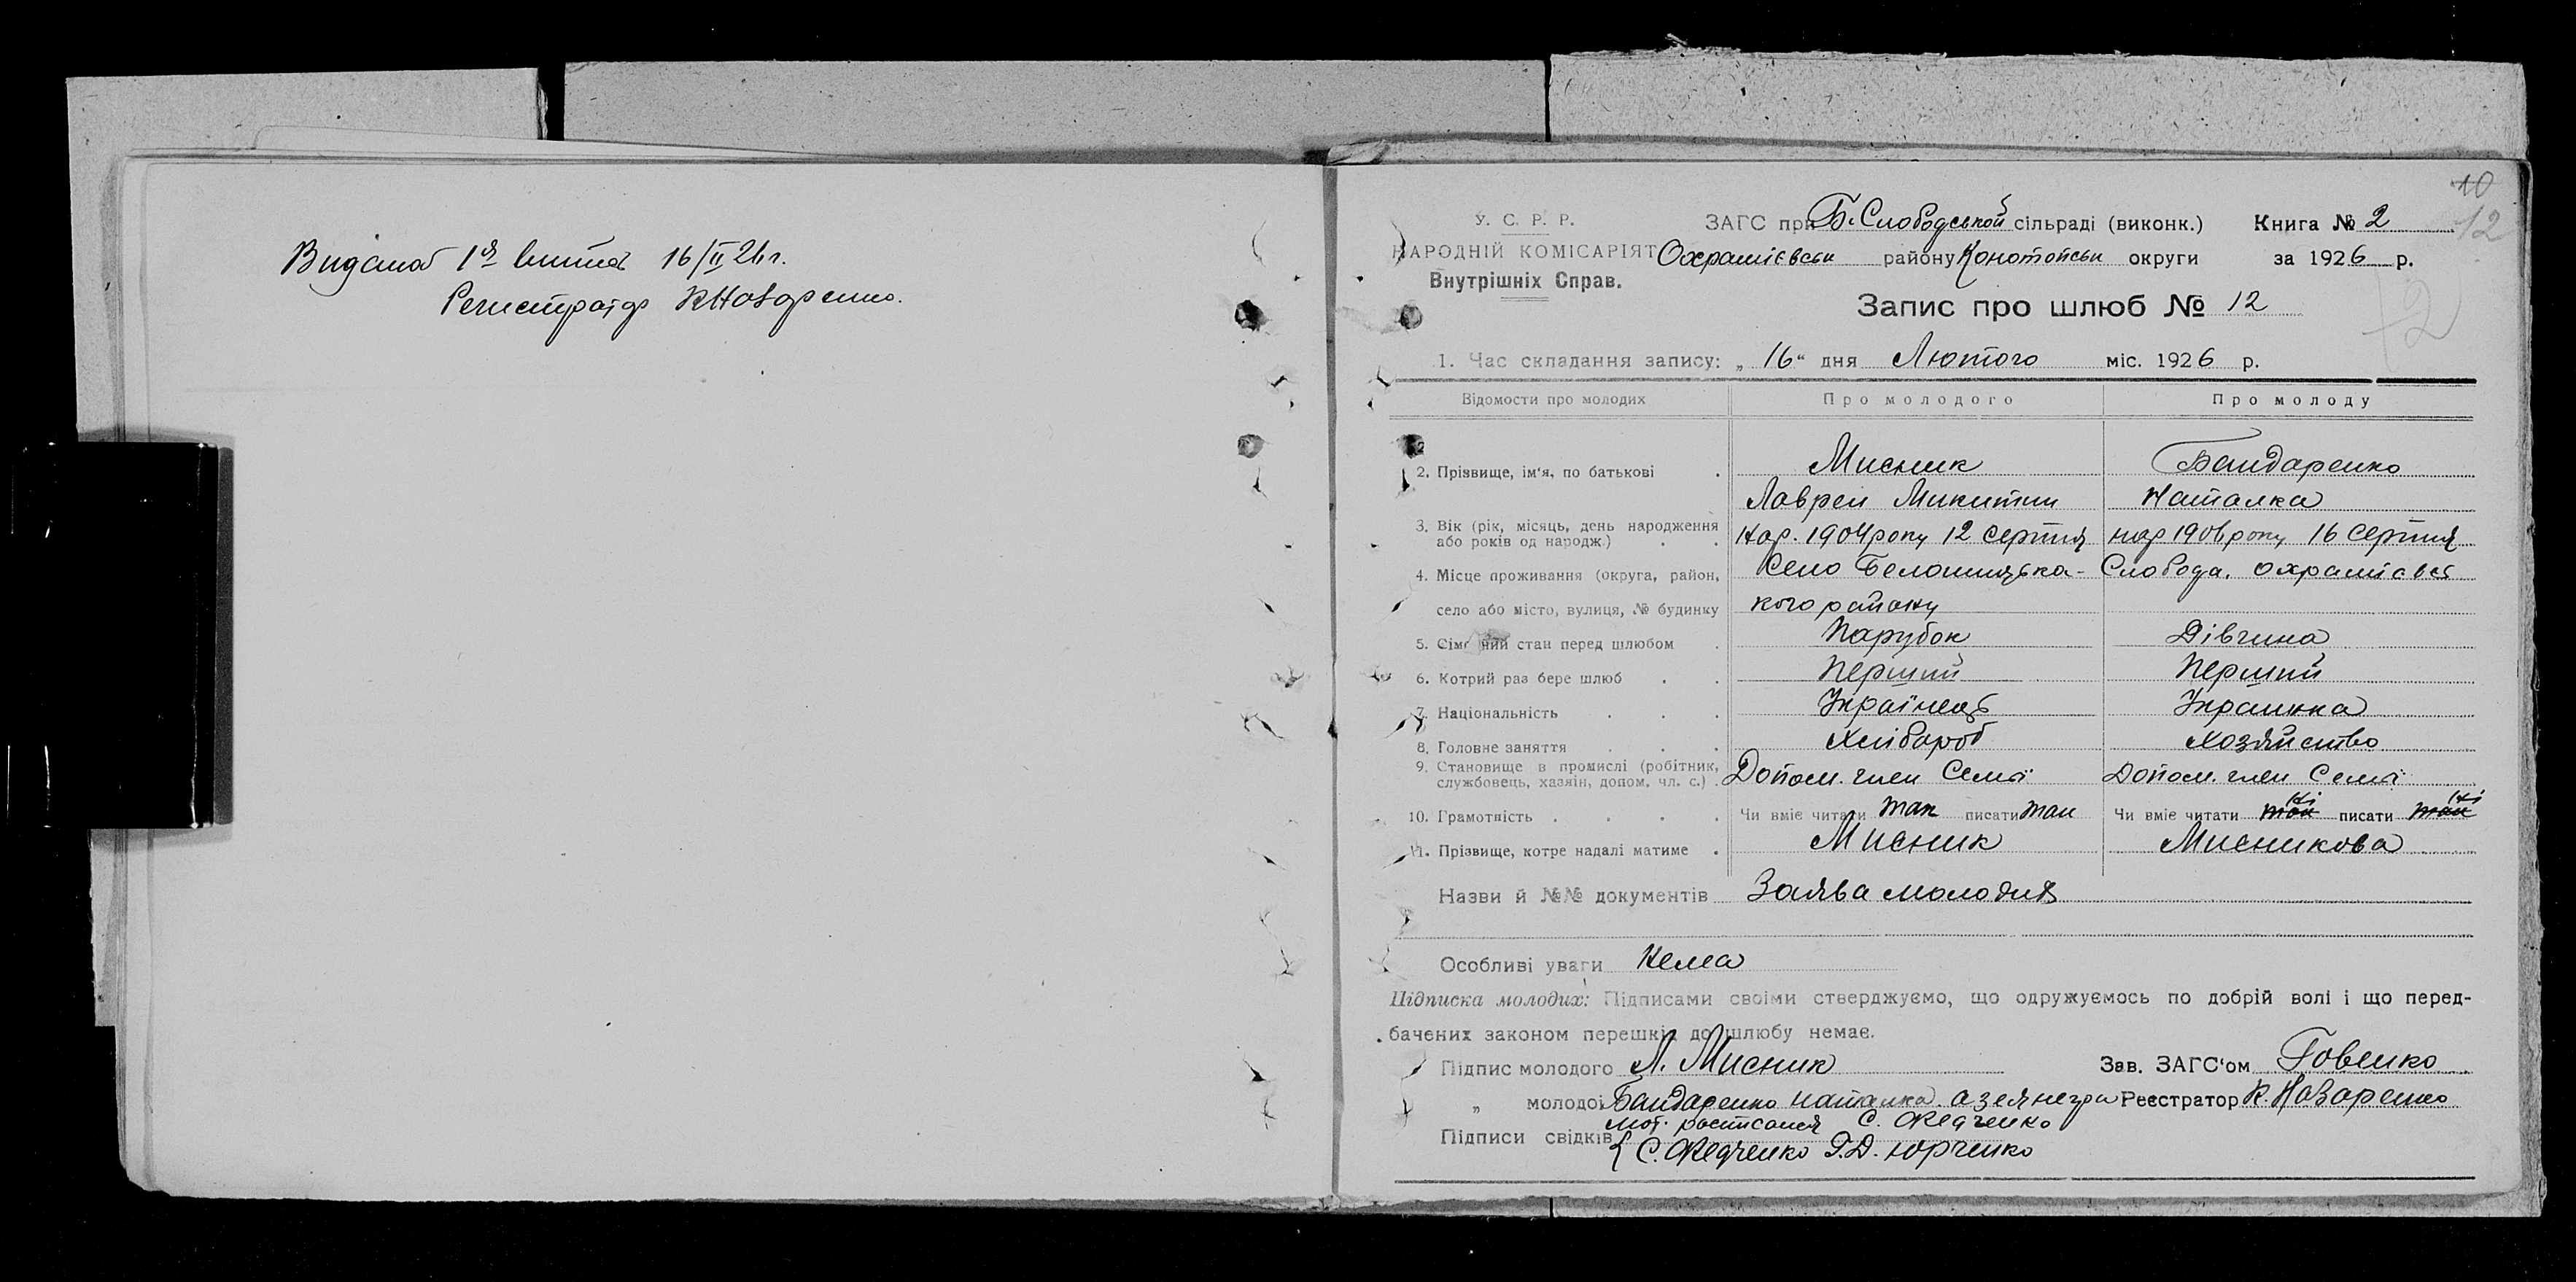 Видано 1й витяг 16/II 26 г.
Регистратор К Назаренко.
10
12
У. С. Р. Р.
НАРОДНІЙ КОМІСАРІЯТ
Внутрішніх Справ.
ЗАГС при Б. Слободськой сільраді (виконк.) Книга № 2
Охрамієвськ району Конотопськ округи за 1926 р.
Запис про шлюб № 12
12
1. Час складання запису: „ 16 “ дня Лютого міс. 1926 р.
Відомости про молодих Про молодого Про молоду
2. Прізвище, ім'я, по батькові . Мисник Бандаренко
Лаврен Микитин Наталка
3. Вік (рік, місяць, день народження або років од народж.) . . Нар. 1904 року 12 серпня нар 1906 року 16 серпня
4. Місце проживання (округа, район, Село Белошицька- Слобода. Охрамієвсь
село або місто, вулиця, № будинку кого району
5. Сімейний стан перед шлюбом . Парубок Дівчина
6. Котрий раз бере шлюб . . Перший Перший
7. Національність . . . Українець Украинка
8. Головне заняття . . . Хлібароб Хозяйство
9. Становище в промислі (робітник, службовець, хазяін, допом. чл. с.) . Допом. член Семї Допом. член Семї
10. Грамотність . . . . Чи вміє читати так писати так Чи вміє читати так ні писати так ні
11. Прізвище, котре надалі матиме . Мисник Мисникова
Назви й №№ документів Заява молодих
Особливі уваги Нема
Підписка молодих: Підписами своіми стверджуємо, що одружуємось по добрій волі і що перед-
бачених законом перешкід до шлюбу немає.
Підпис молодого Л. Мисник Зав. ЗАГС'ом Говенко
„ молодоі Бандаренко Наталка а за негра Реєстратор К. Назаренко
мот. росписался С. Федченко
Підписи свідків { С. Федченко Г. Д. Юрченко